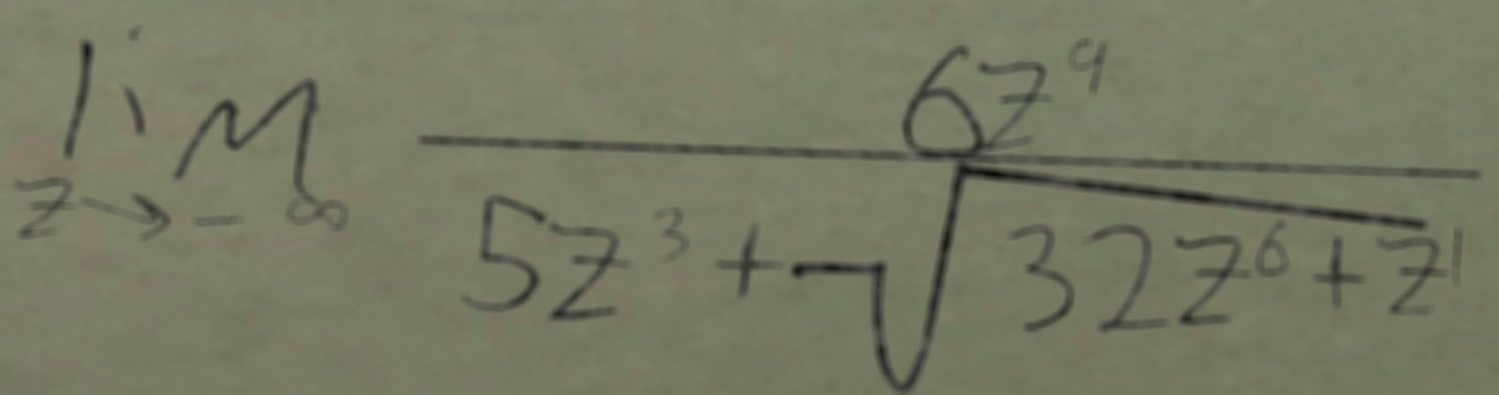 \lim_{z \to -\infty} \frac{6z^9}{5z^3 + \sqrt{32z^6 + z^1}}